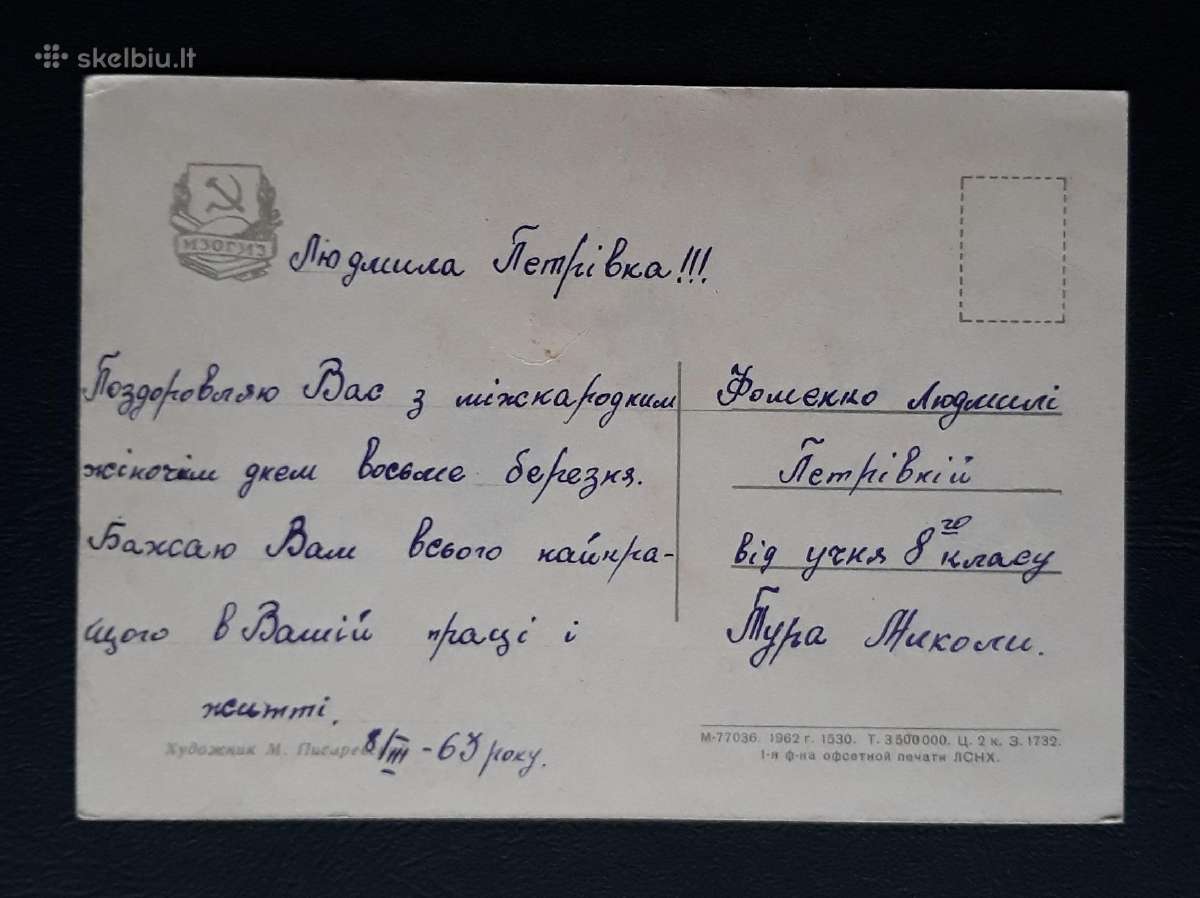 skelbiu.lt
ИЗОГИЗ
Людмила Петрівна!!!
Поздоровляю Вас з міжнародним
жіночим днем восьме березня.
Бажаю Вам всього найкра-
щого в Вашій праці і
житті.
8/III - 63 року.
Художник М. Писарев
Фоменко Людмилі
Петрівній
від учня 8го класу
Тура Миколи.
М-77036. 1962 г. 1530. Т. 3500000. Ц. 2 к. З. 1732.
1-я ф-ка офсетной печати ЛСНХ.